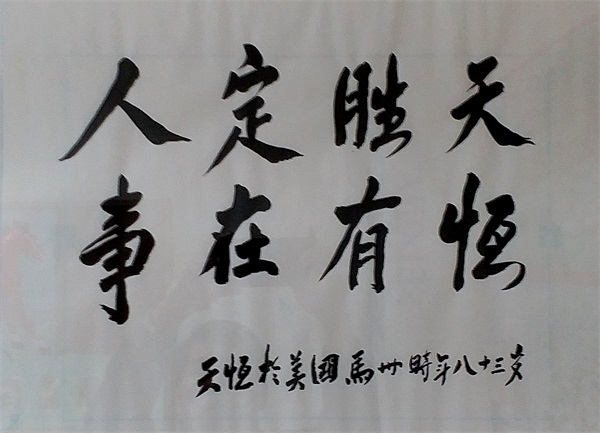 人定胜天
事在有恒
天恒於美國馬州時年八十三岁